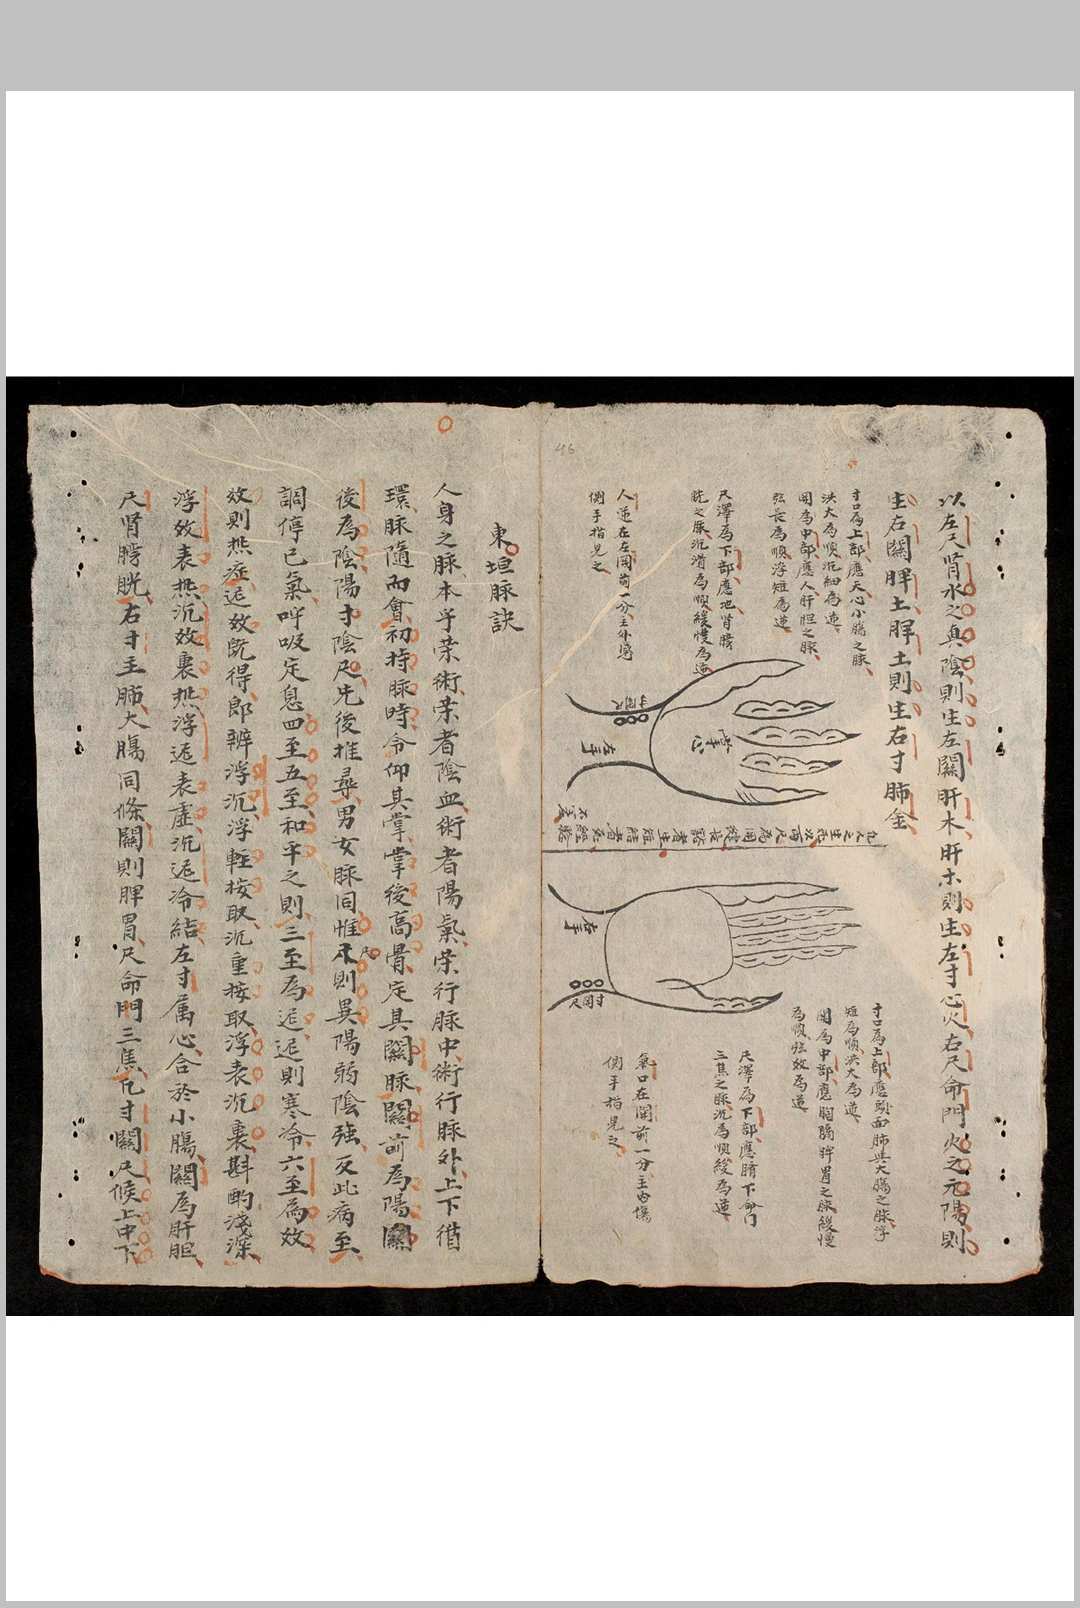 以左尺肾水之真陰則生左關肝木肝木則生左寸心火右尺命門火之元陽則
生右關脾土脾土則生右寸肺金
寸口為上部應天心小腸之脉
洪大為順沉細為逆
関為中部應人肝胆之脉
弦長為順浮短為逆
尺澤為下部應地肾膀
胱之脉沉滑為順緩慢為逆
人迎在左関前一分主外感
側手指見之
寸関尺
左手
掌心
寸口為上部應頭面肺與大腸之脉浮
短為順洪大為逆
関為中部應胸膈脾胃之脉緩慢
為順弦效為逆
尺澤為下部應脐下命门
三焦之脉沉為順緩為逆
氣口在関前一分主内傷
側手指見之
右手
寸関尺
46
東垣脉訣
人身之脉本乎荣術荣者陰血術者陽氣荣行脉中術行脉外上下循
環脉隨而會初持脉時令仰其掌掌後高骨定具關脉關前為陽關
後為陰陽寸陰尺先後推尋男女脉同惟尺則異陽弱陰強反此病至
調停已氣呼吸定息四至五至和平之則三至為迟迟則寒冷六至為效
效則热症迟效既得郎辨浮沉浮輕按取沉重按取浮表沉裏斟酌淺深
浮效表热沉效裏热浮迟表虛沉迟冷結左寸属心合於小腸關為肝胆
尺肾膀胱右寸主肺大腸同條關則脾胃尺命門三焦凡寸關尺候上中下